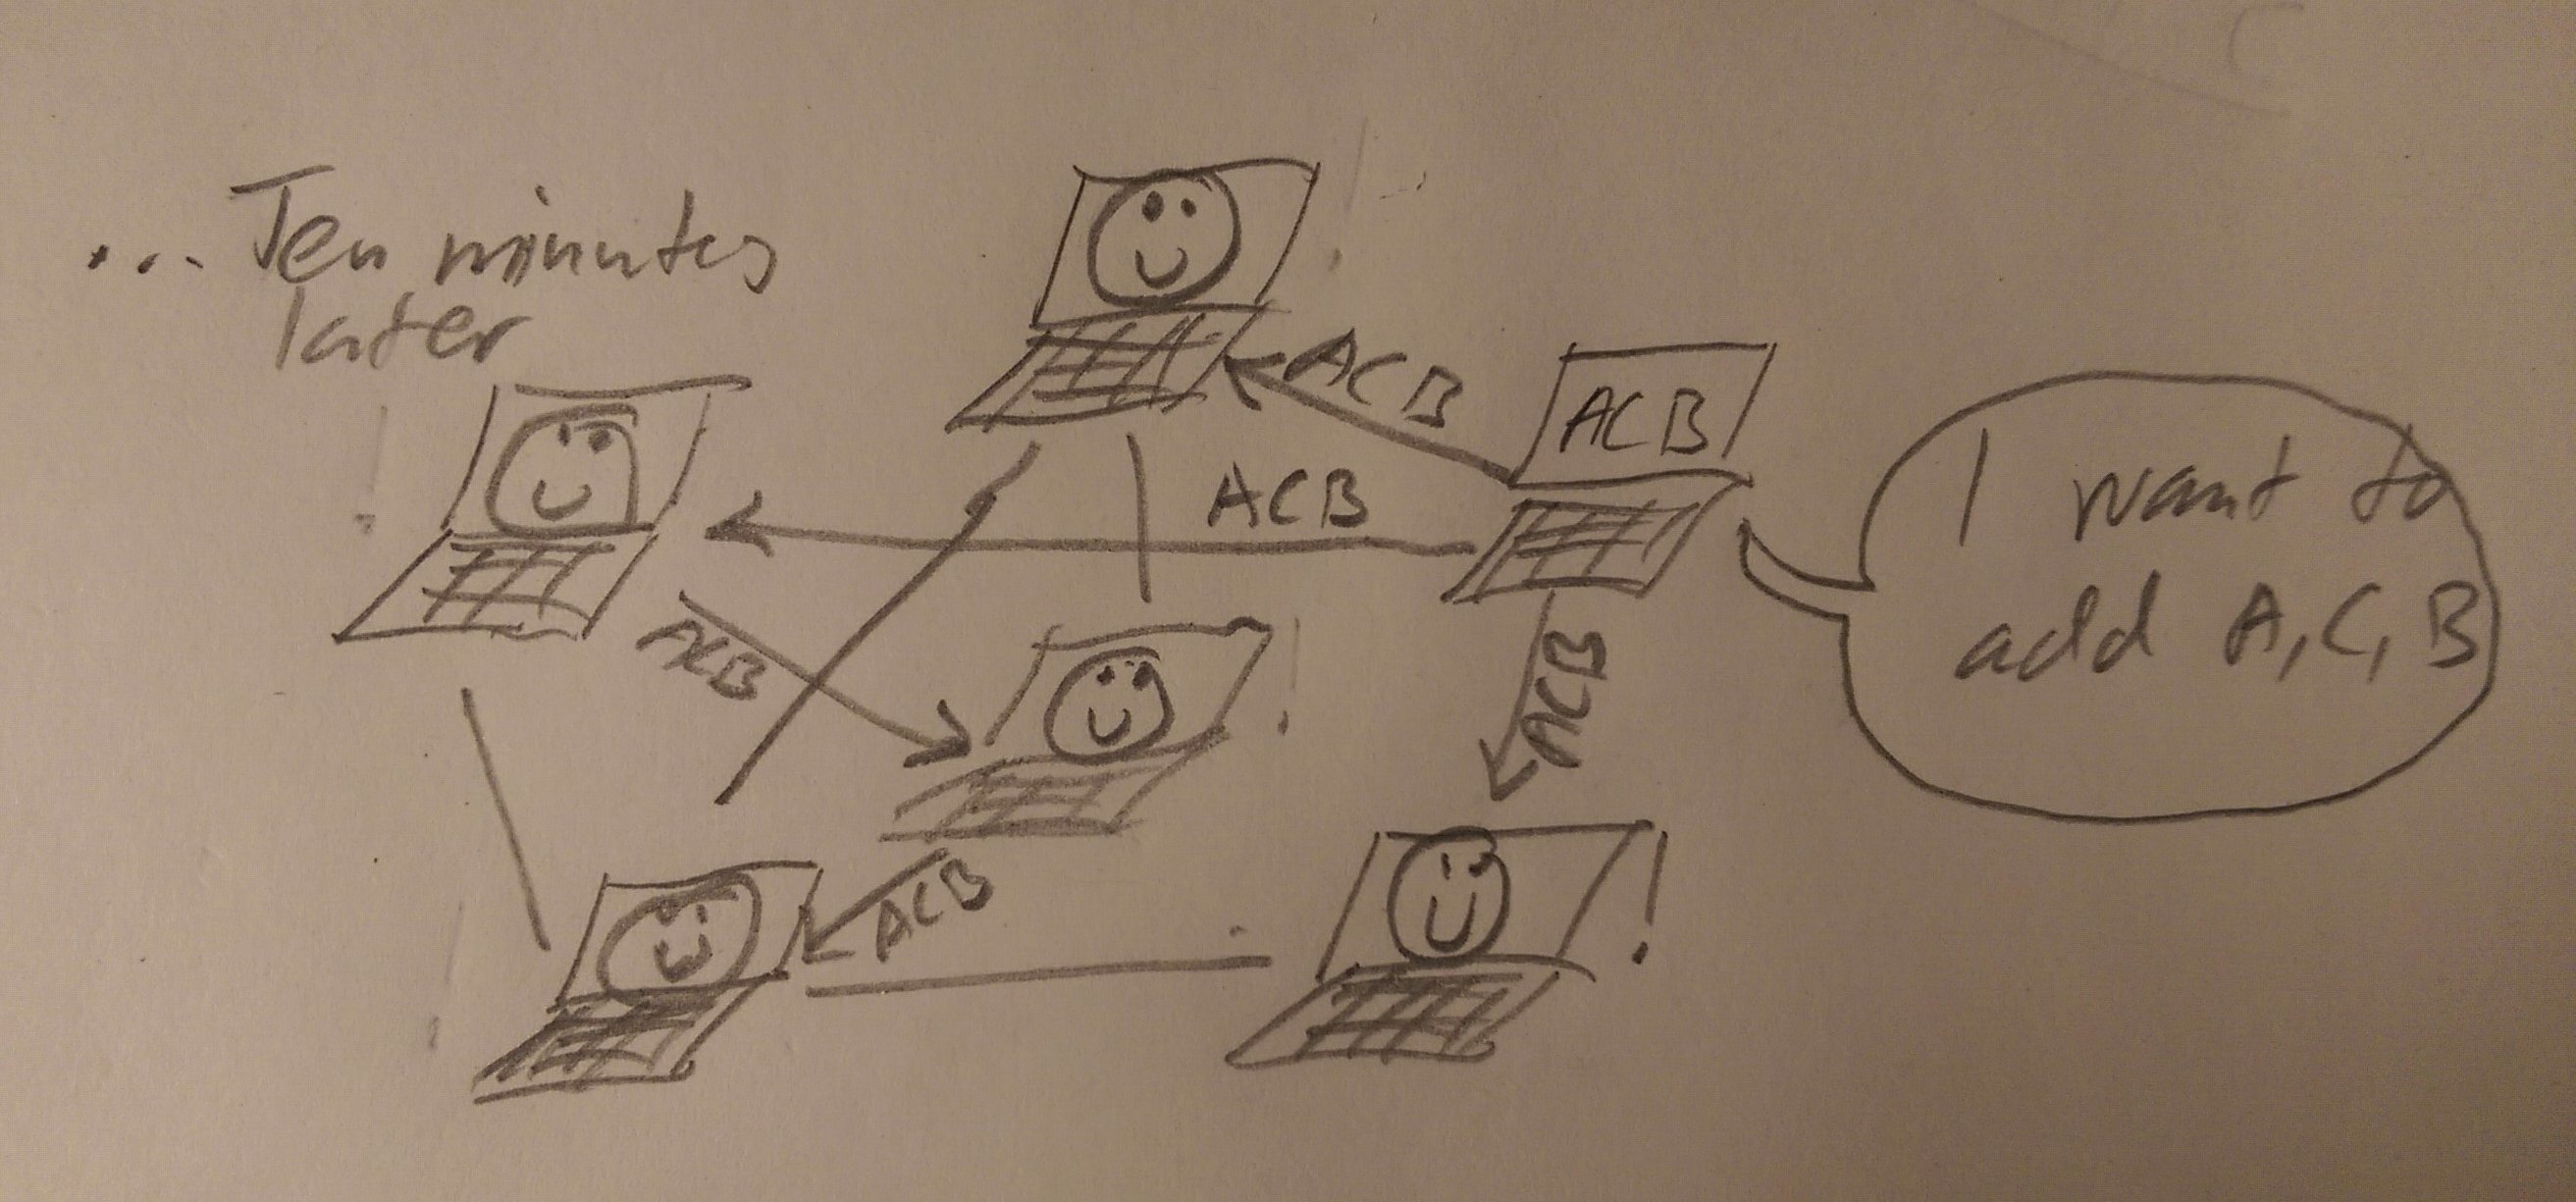 ... Ten minutes
later
ACB
ACB
ACB
I want to
add A, C, B
ACB
ACB
ACB
!
!
!
!
!